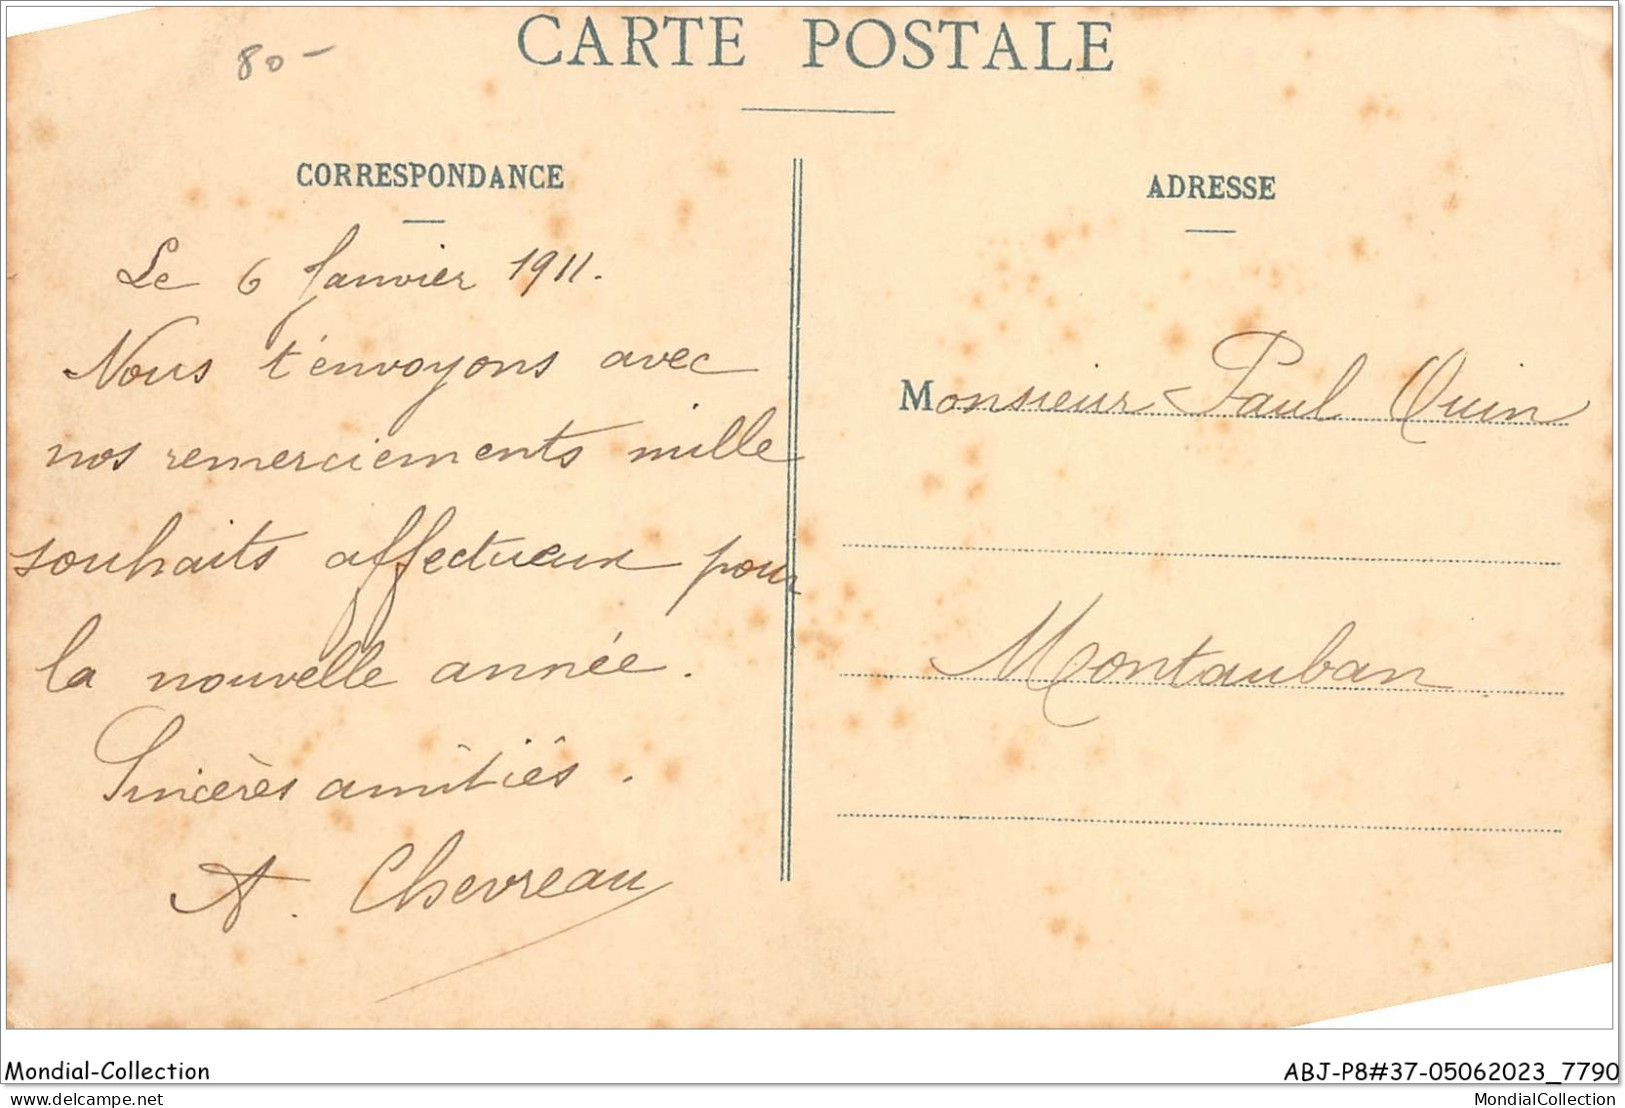 CARTE POSTALE
80-
CORRESPONDANCE
Le 6 Janvier 1911.
Nous t'envoyons avec
nos remerciements mille
souhaits affectueux pour
la nouvelle année.
Sincères amitiés.
A. Chevreau
ADRESSE
Monsieur Paul Ouin
Montauban
Mondial-Collection
ABJ-P8#37-05062023_7790
delcampe.net
MondialCollection